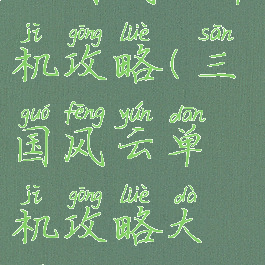 jī gōng lüè sān
机攻略(三
guó fēng yún dān
国风云单
jī gōng lüè dà
机攻略大